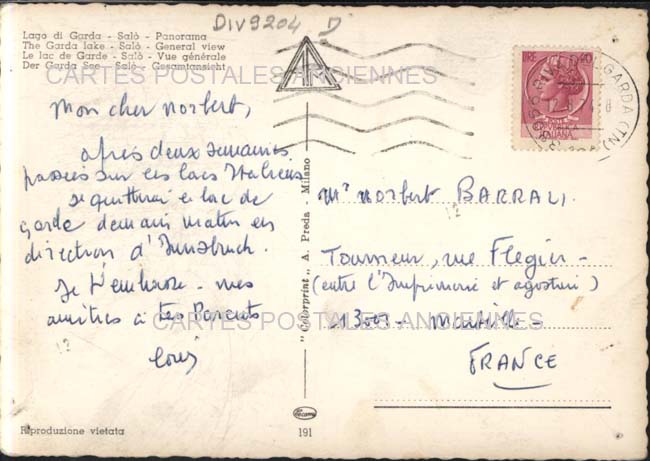 DIV9204 D
Lago di Garda - Salò - Panorama
The Garda lake - Salò - General view
Le lac de Garde - Salò - Vue générale
Der Garda See - Salò - Gesamtansicht
CARTES POSTALES ANCIENNES
LIRE 40
POSTE
ITALIANA
RIVA DEL GARDA (TN)
Mon cher Norbert,
après deux semaines
passées sur les lacs Italiens
je quitterai le lac de
garde demain matin en
direction d'Innsbruck.
Je t'embrasse - mes
amitiés à tes Parents
Louis
"Colorprint" A. Preda - Milano
Mr Norbert BARRALI.
Tourneur, rue Flégier -
(entre l'Imprimerie et agostini)
13003 - Marseille -
FRANCE
CARTES POSTALES ANCIENNES
Riproduzione vietata
191